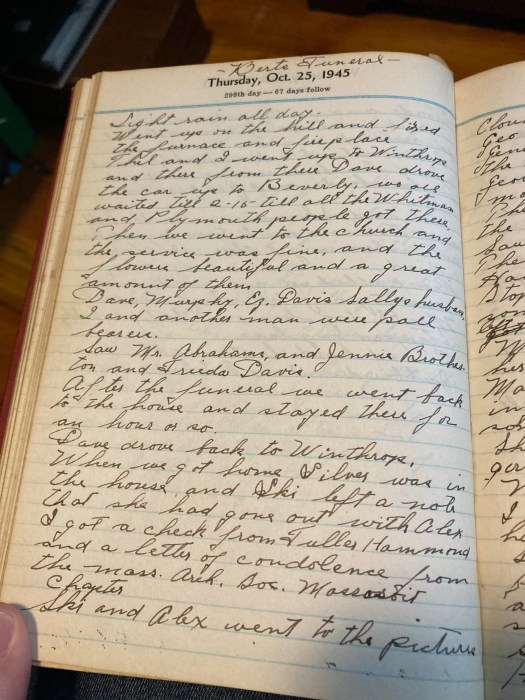 - Berts Funeral -
Thursday, Oct. 25, 1945
298th day — 67 days follow
Light rain all day.
Went up on the hill and fixed
the furnace and fireplace.
Phil and I went up to Winthrop
and there from there Dave drove
the car up to Beverly, we all
waited till 2-15 till all the Whitman
and Plymouth people got there.
Then we went to the church and
the service was fine, and the
flowers beautiful and a great
amount of them.
Dave, Murphy, Ez. Davis Sallys husban,
I and another man were pall
bearers.
Saw Mr. Abrahams, and Jennie Brother-
ton and Frieda Davis.
After the funeral we went back
to the house and stayed there for
an hour or so.
Dave drove back to Winthrop.
When we got home Silver was in
the house, and Ski left a note
that she had gone out with Alex
I got a check from Fuller Hammond
and a letter of condolence from
the mass. Arch. Soc. Massasoit
Chapter
Ski and Alex went to the pictures
Clou
Geo
the
Geor
the
Sau
The
Stop
her
Ma
in
Sh
ger
I
ha